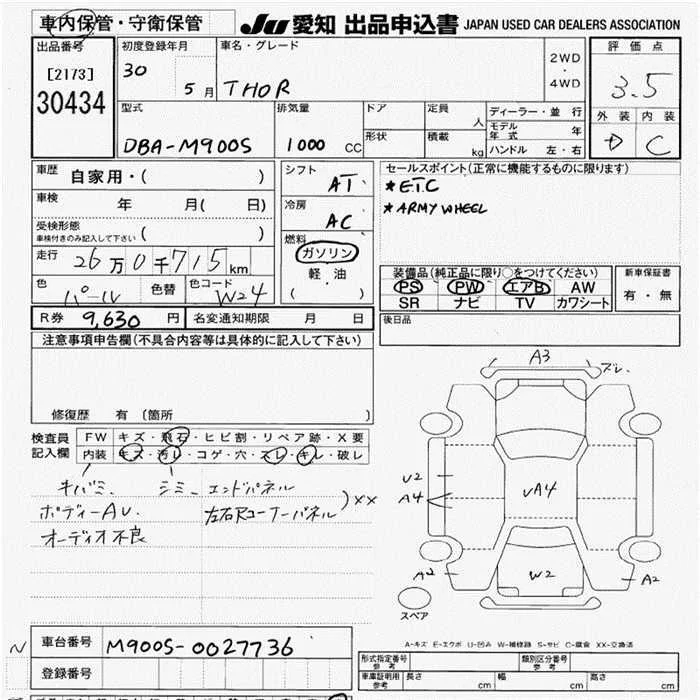 車内保管・守衛保管 JU 愛知 出品申込書 JAPAN USED CAR DEALERS ASSOCIATION
出品番号 初度登録年月 車名・グレード 2WD・4WD 評価点
[2173] 30 5月 THOR 3.5
30434 型式 排気量 ドア 定員 人 ディーラー・並行 外装 内装
DBA-M900S 1000 CC 形状 積載 kg モデル年式 年 D C
ハンドル 左・右
車歴 自家用・( ) シフト AT セールスポイント(正常に機能するものに限ります)
車検 年 月( 日) 冷房 AC ★ E.T.C
受検形態 車検付きのみ記入して下さい ( ) ★ ARMY WHEEL
走行 26万0千715km 燃料 ガソリン
軽・油
( )
色 パール 色替 色コード W24
装備品(純正品に限り○をつけてください) 新車保証書
PS PW エアB AW 有・無
SR ナビ TV カワシート
R券 9,630円 名変通知期限 月 日 後日品
注意事項申告欄(不具合内容等は具体的に記入して下さい)
修復歴 有 〔箇所 〕
A3 ズレ
検査員記入欄 FW キズ・飛石・ヒビ割・リペア跡・X要
内装 キズ・汚レ・コゲ・穴・スレ・キレ・破レ
キバミ シミ エンドパネル
ボディーAU 左右Rコーナーパネル )XX
オーディオ不良
U2
A4
UA4
A2 W2 A2
スペア
A-キズ E-エクボ U-凹み W-補修跡 S-サビ C-腐食 XX-交換済
N 車台番号 M900S-0027736
登録番号
形式指定番号 参考 類別区分番号 参考
車庫証明用 参考 長さ cm 幅 cm 高さ cm